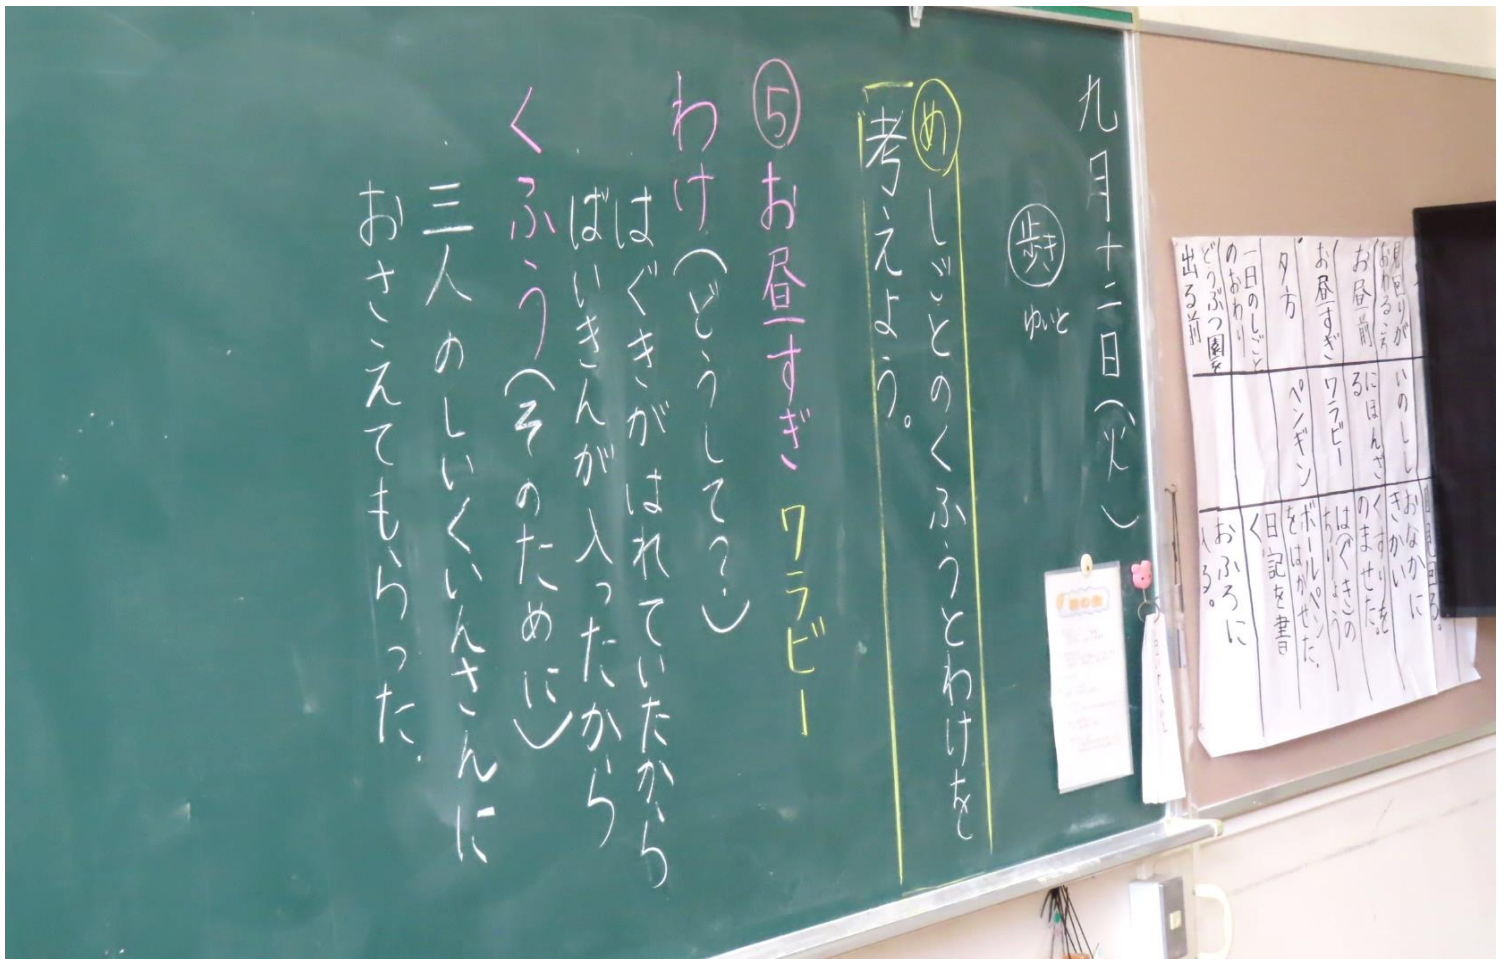 九月十二日(火)
歩き
ゆいと
め しごとのくふうとわけを
考えよう。
⑤お昼すぎ ワラビー
わけ(どうして?)
はぐきがはれていたから
ばいきんが入ったから
くふう(そのために)
三人のしいくいんさんに
おさえてもらった。
見回りが
おわるころ
いのしし
おなかに
きかい
お昼前
にほんざる
くすりを
のませた。
お昼すぎ
ワラビー
はぐきの
ちりょう
夕方
ペンギン
ボールペン
をはかせた。
一日のしごと
のおわり
日記を書
く
どうぶつ園を
出る前
おふろに
入る。